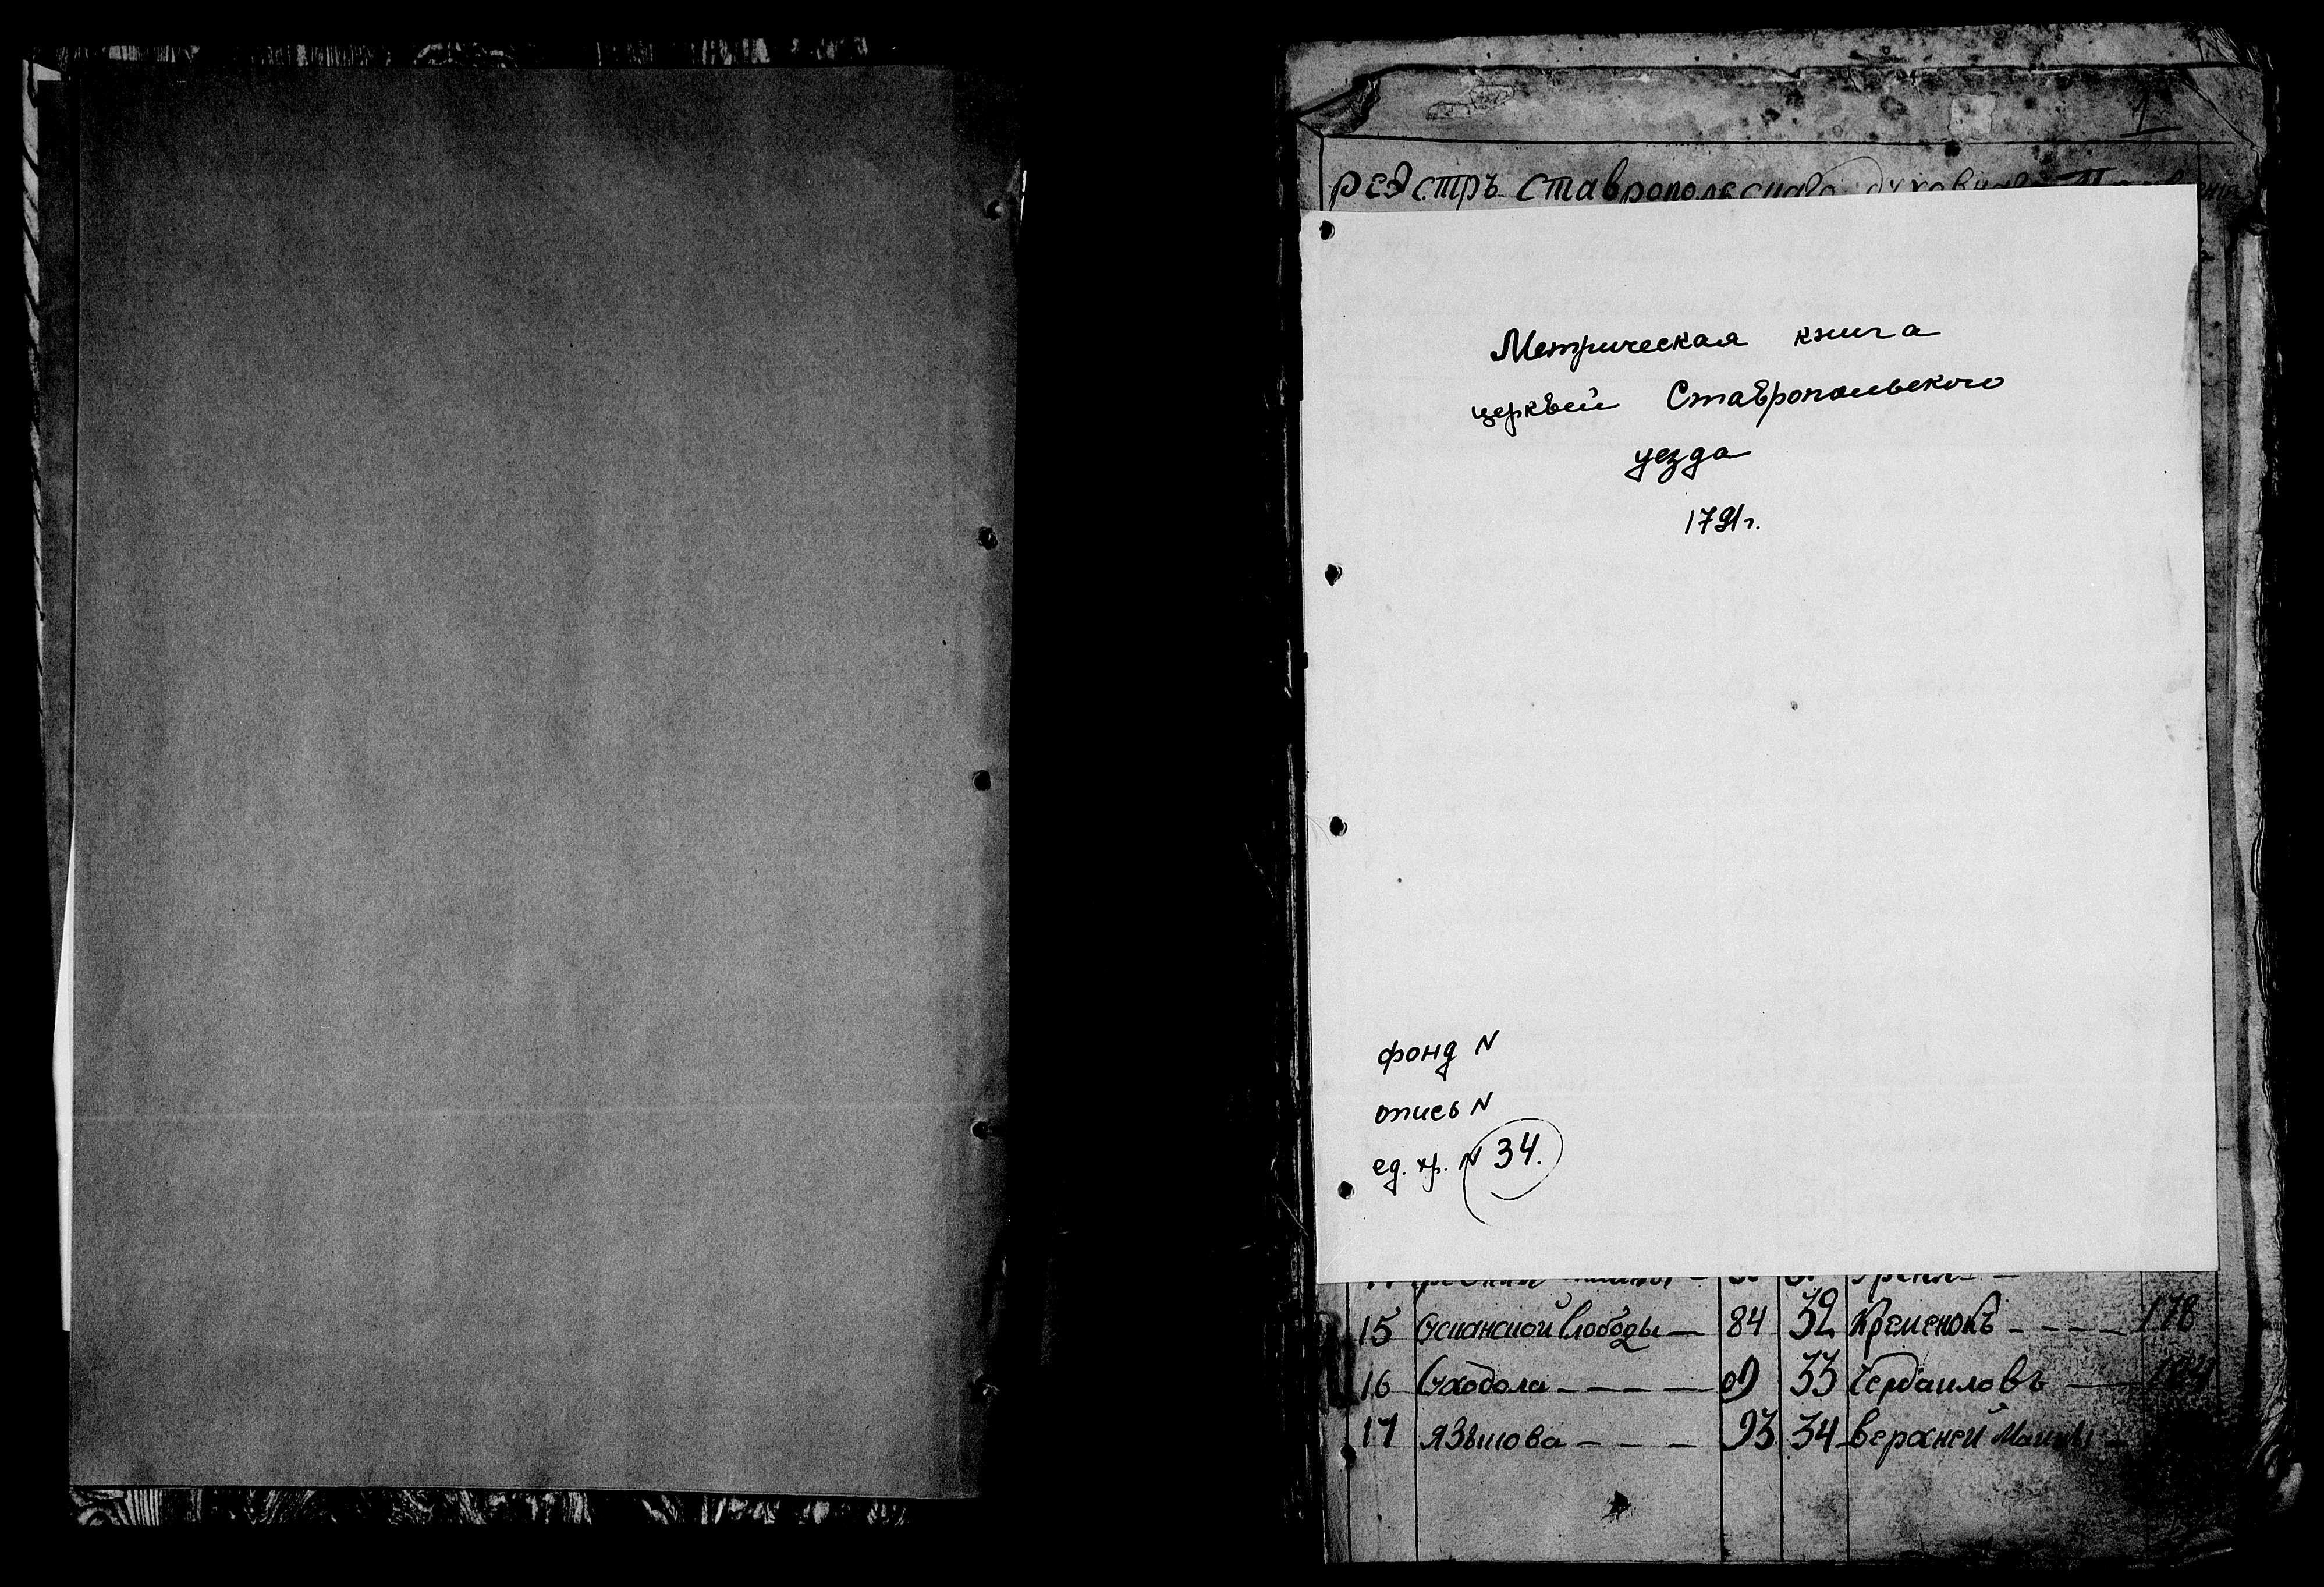 1
реэстръ ставропольскаго духовнаго
Метрическая книга
церквей Ставропольского
уезда
1791г.
фонд N
опись N
ед. хр. N 34.
15 Успанской Слободы — 84 32 Кременокъ - - - - 178
16 Суходола - - - - - 33 Чердаиловъ —
17 Языкова - - - - 93 34 верхней Маины -